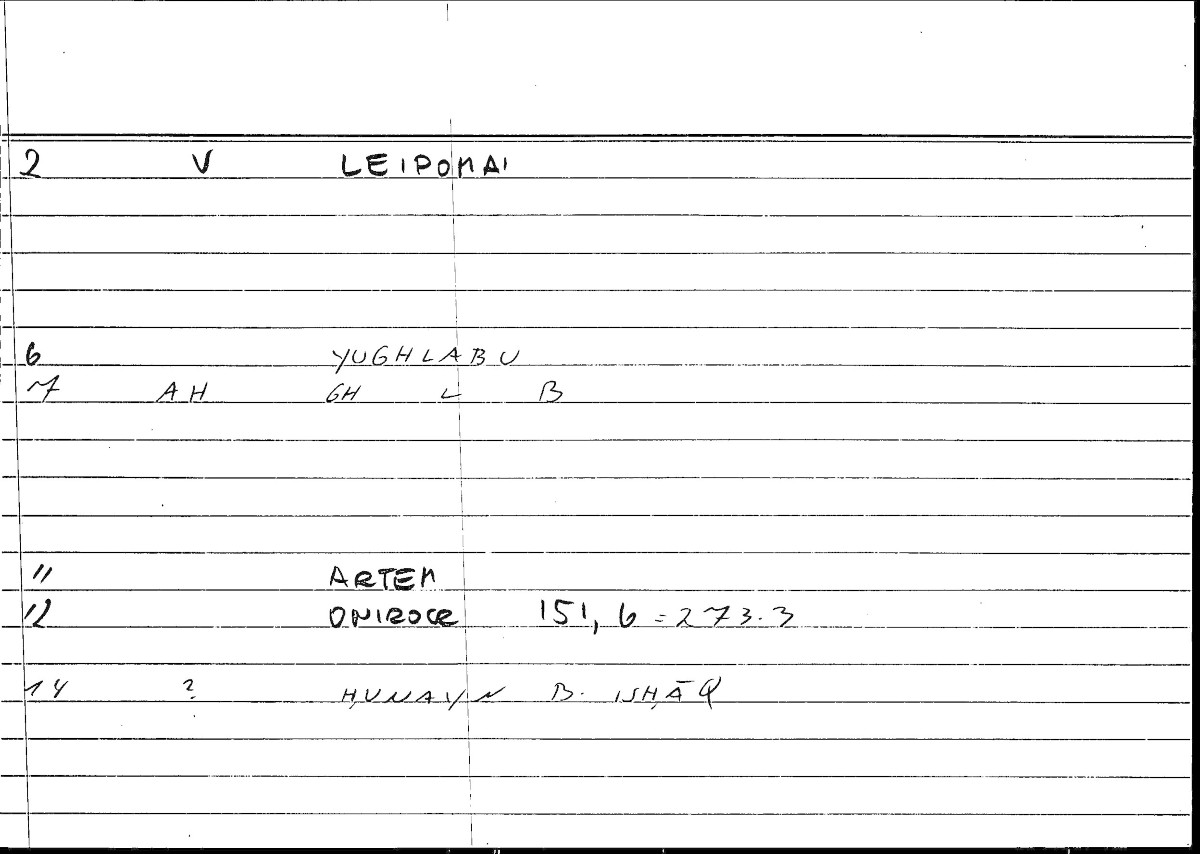 2 V LEIPOMAI
6 YUGHLABU
7 AH GH L B
11 ARTEM
12 ONIROCR 151, 6 = 273.3
14 ? ḤUNAYN B. ISḤĀQ